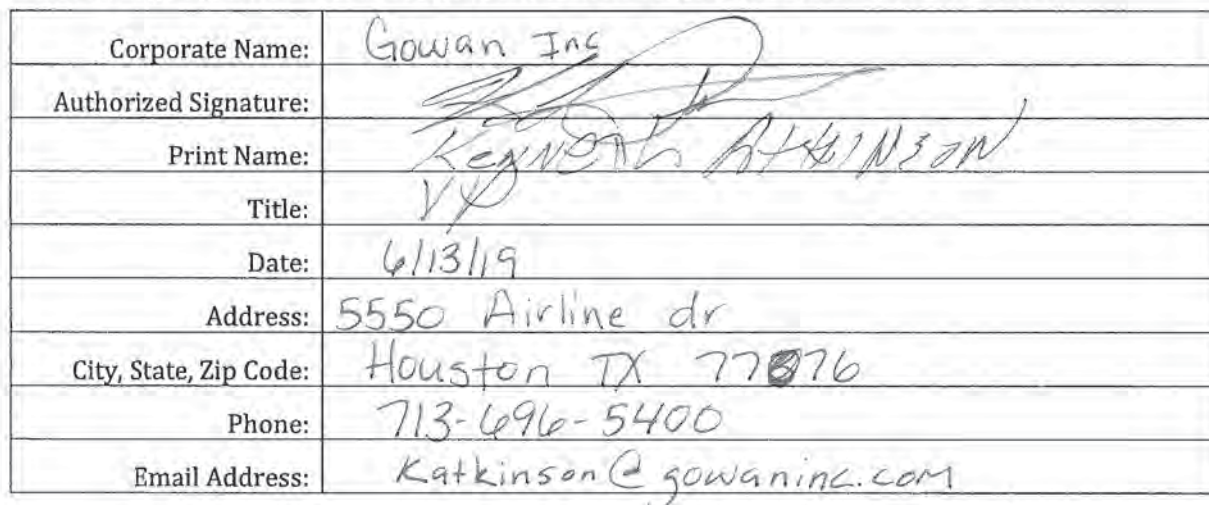 Corporate Name: Gowan Inc
Authorized Signature:
Print Name: Kenneth Atkinson
Title: VP
Date: 6/13/19
Address: 5550 Airline dr
City, State, Zip Code: Houston TX 77076
Phone: 713-696-5400
Email Address: Katkinson@gowaninc.com